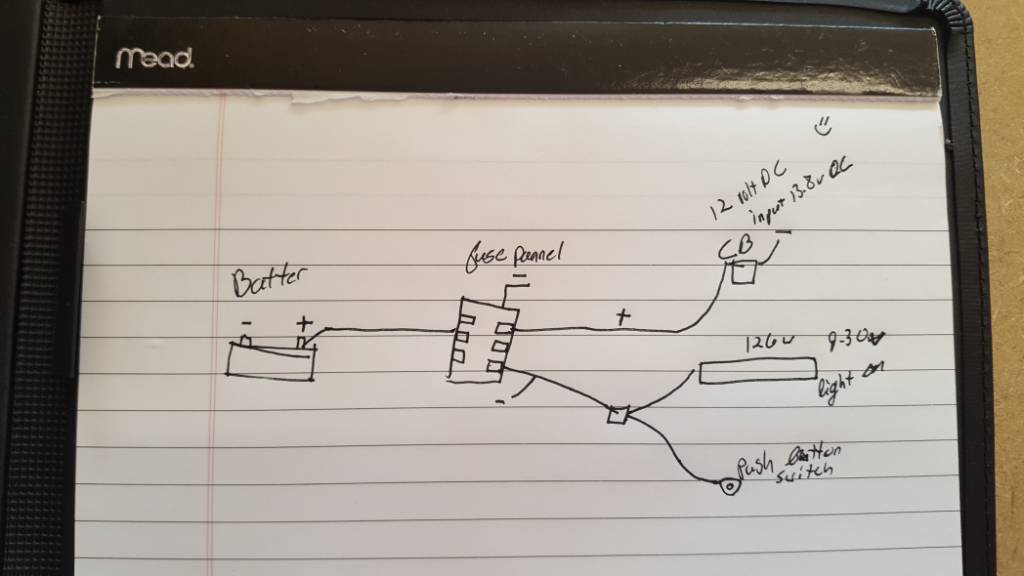 mead
12 volt DC
input 13.8v DC
CB
fuse pannel
Batter
- +
+
126w 9-30v
light
-
push button
switch